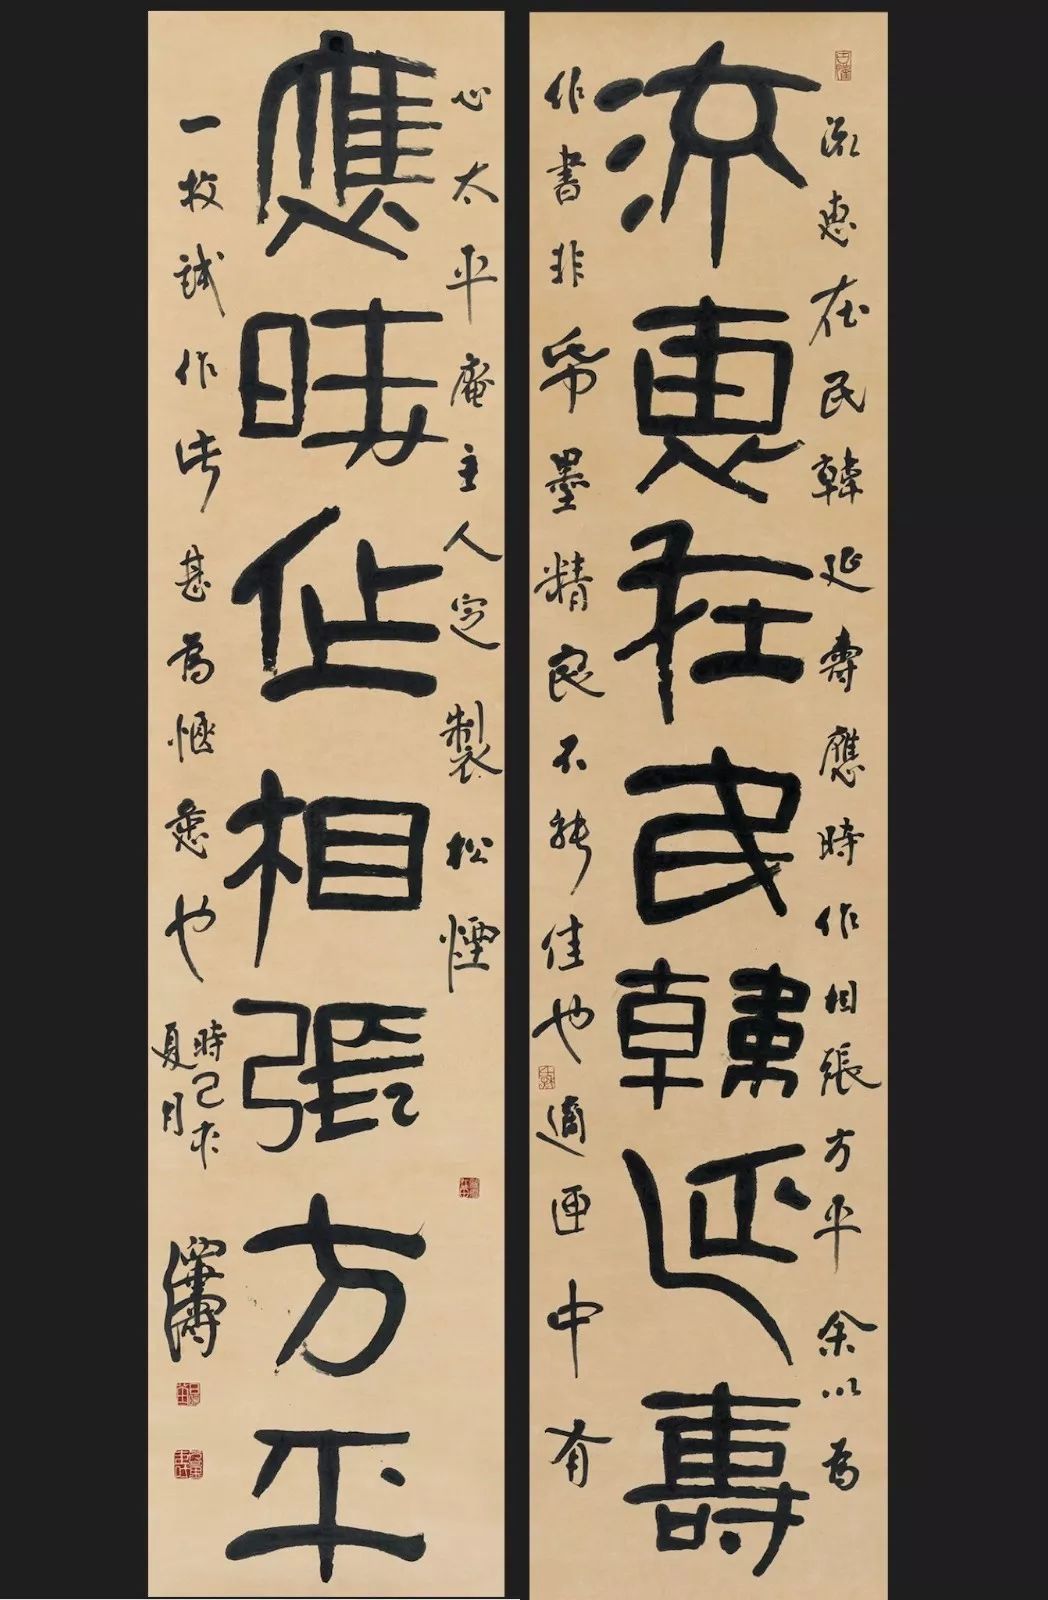 流惠在民韓延壽應時作相張方平余以為
流惠在民韓延壽
作書非帋墨精良不能佳也適匣中有
心太平庵主人定製松煙
應時作相張方平
一枚試作此甚為愜意也
時己未
夏月